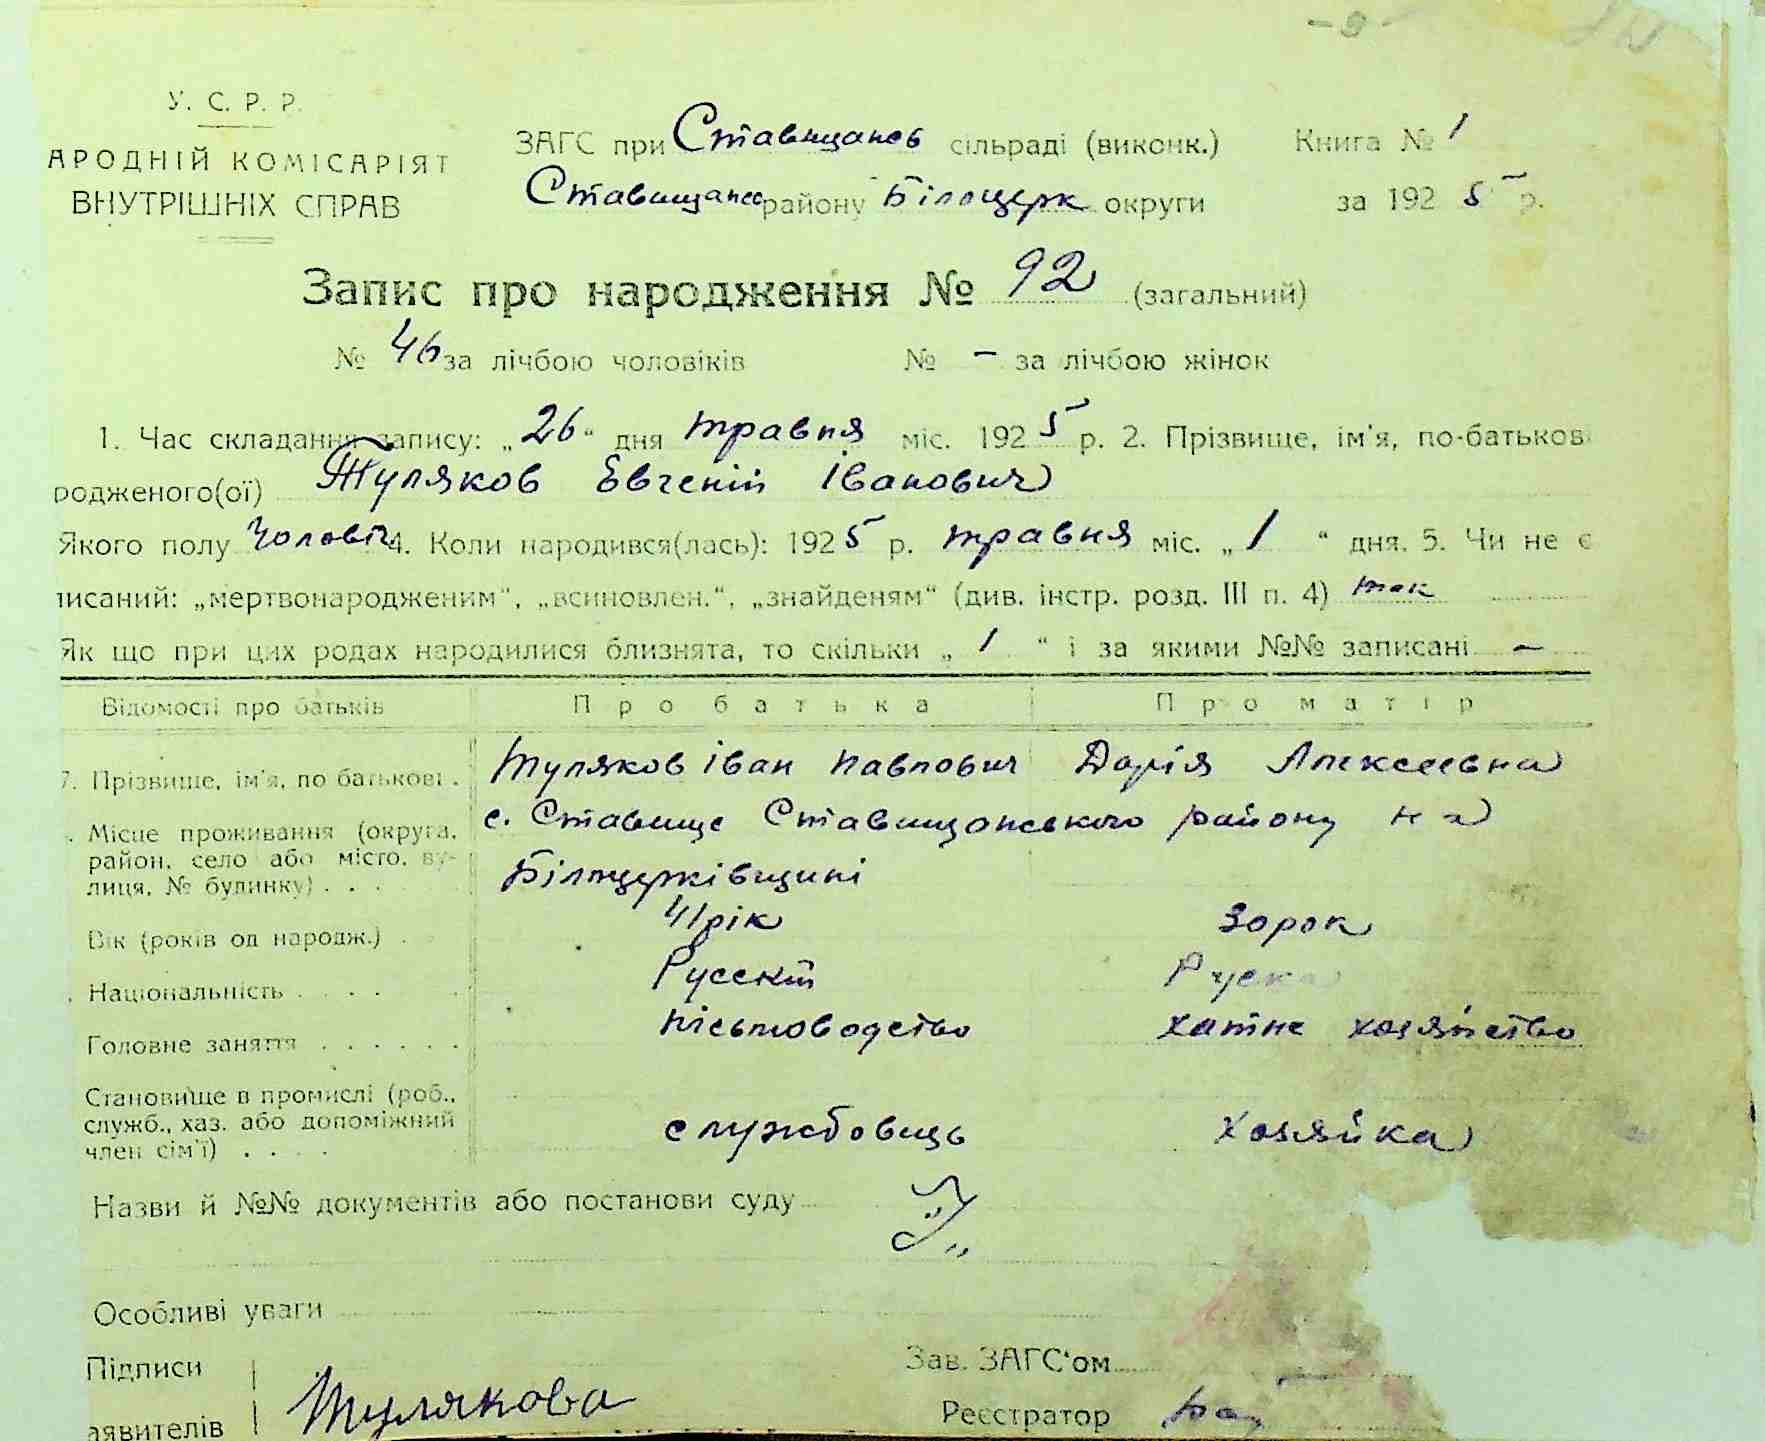 У. С. Р. Р.
АРОДНІЙ КОМІСАРІЯТ
ВНУТРІШНІХ СПРАВ
ЗАГС при Ставищанськ сільраді (виконк.) Книга № 1
Ставищанськ району Білоцерк округи за 1925 р.
Запис про народження № 92 (загальний)
№ 46 за лічбою чоловіків № – за лічбою жінок
1. Час складання запису: „26“ дня травня міс. 1925 р. 2. Прізвище, ім'я, по-батькові
родженого(ої) Туляков Евгеній Іванович
Якого полу Чоловіч 4. Коли народився(лась): 1925 р. травня міс. „1“ дня. 5. Чи не є
писаний: „мертвонародженим“, „всиновлен.“, „знайденям“ (див. інстр. розд. III п. 4) так
Як що при цих родах народилися близнята, то скільки „1“ і за якими №№ записані –
Відомості про батьків Про батька Про матір
7. Прізвище, ім'я, по батькові . Туляков Іван Павлович Дарія Алексеевна
. Місце проживання (округа, район, село або місто, ву-лиця, № будинку) . . . с. Ставище Ставищанського району на
Білоцерківщині
Вік (років од народж.) . 41 рік 30 рок
. Національність . . . . Русский Руска
Головне заняття . . . . . . пісьмоводство хатне хозяйство
Становище в промислі (роб.,
служб., хаз. або допоміжний
член сім'ї) . . . . службовець хозяйка
Назви й №№ документів або постанови суду
Особливі уваги
Підписи
аявителів Тулякова
Зав. ЗАГС'ом
Реєстратор